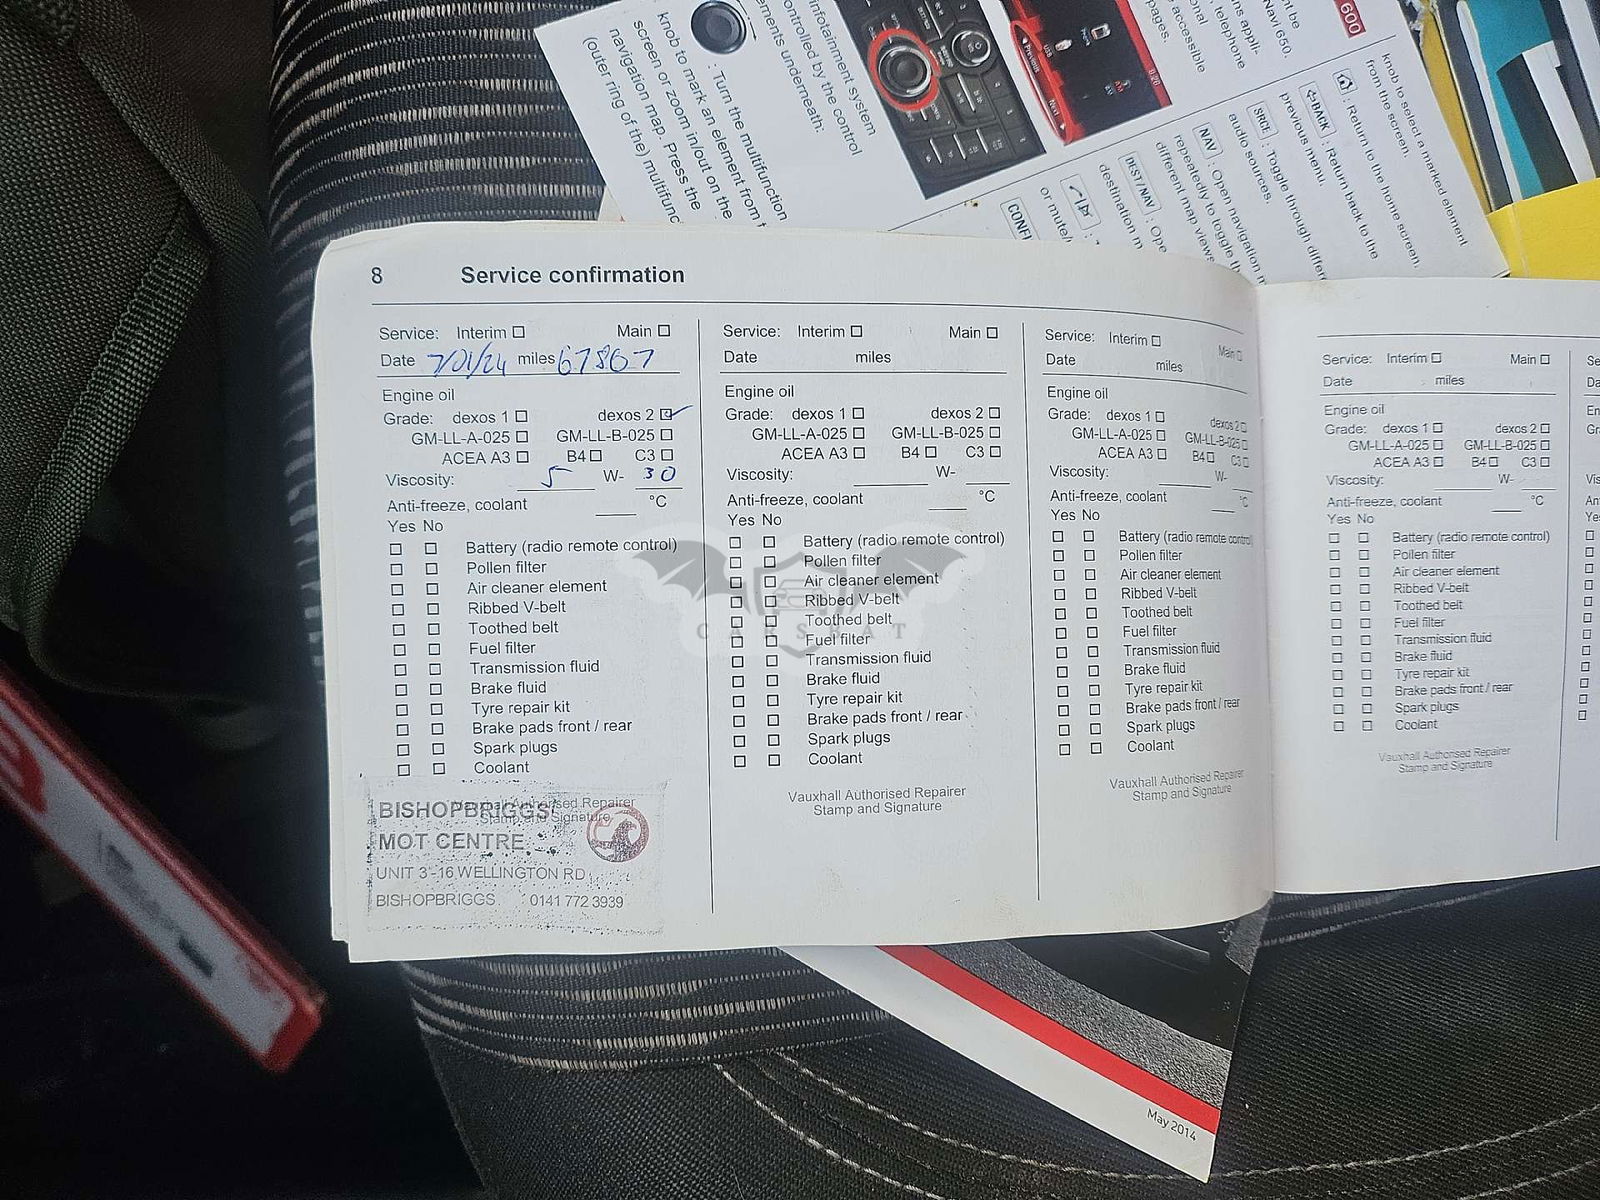 600
infotainment system
controlled by the control
ements underneath:
: Turn the multifunction
knob to mark an element from
screen or zoom in/out on the
navigation map. Press the
(outer ring of the) multifunc
Navi 650.
telephone
accessible
pages.
knob to select a marked element
from the screen.
: Return to the home screen.
BACK : Return back to the
previous menu.
SRCE : Toggle through differ
audio sources.
NAV : Open navigation m
repeatedly to toggle th
different map views
DEST/NAV : Ope
destination m
or mute/
8 Service confirmation
Service: Interim Main
Date 7/01/24 miles 67867
Engine oil
Grade: dexos 1 dexos 2
GM-LL-A-025 GM-LL-B-025
ACEA A3 B4 C3
Viscosity: 5 W- 30
Anti-freeze, coolant °C
Yes No
Battery (radio remote control)
Pollen filter
Air cleaner element
Ribbed V-belt
Toothed belt
Fuel filter
Transmission fluid
Brake fluid
Tyre repair kit
Brake pads front / rear
Spark plugs
Coolant
Vauxhall Authorised Repairer
Stamp and Signature
BISHOPBRIGGS
MOT CENTRE
UNIT 3 - 16 WELLINGTON RD
BISHOPBRIGGS 0141 772 3939
Service: Interim Main
Date miles
Engine oil
Grade: dexos 1 dexos 2
GM-LL-A-025 GM-LL-B-025
ACEA A3 B4 C3
Viscosity: W-
Anti-freeze, coolant °C
Yes No
Battery (radio remote control)
Pollen filter
Air cleaner element
Ribbed V-belt
Toothed belt
Fuel filter
Transmission fluid
Brake fluid
Tyre repair kit
Brake pads front / rear
Spark plugs
Coolant
Vauxhall Authorised Repairer
Stamp and Signature
Service: Interim Main
Date miles
Engine oil
Grade: dexos 1 dexos 2
GM-LL-A-025 GM-LL-B-025
ACEA A3 B4 C3
Viscosity: W-
Anti-freeze, coolant °C
Yes No
Battery (radio remote control)
Pollen filter
Air cleaner element
Ribbed V-belt
Toothed belt
Fuel filter
Transmission fluid
Brake fluid
Tyre repair kit
Brake pads front / rear
Spark plugs
Coolant
Vauxhall Authorised Repairer
Stamp and Signature
Service: Interim Main
Date miles
Engine oil
Grade: dexos 1 dexos 2
GM-LL-A-025 GM-LL-B-025
ACEA A3 B4 C3
Viscosity: W-
Anti-freeze, coolant °C
Yes No
Battery (radio remote control)
Pollen filter
Air cleaner element
Ribbed V-belt
Toothed belt
Fuel filter
Transmission fluid
Brake fluid
Tyre repair kit
Brake pads front / rear
Spark plugs
Coolant
Vauxhall Authorised Repairer
Stamp and Signature
CARSBAT
May 2014